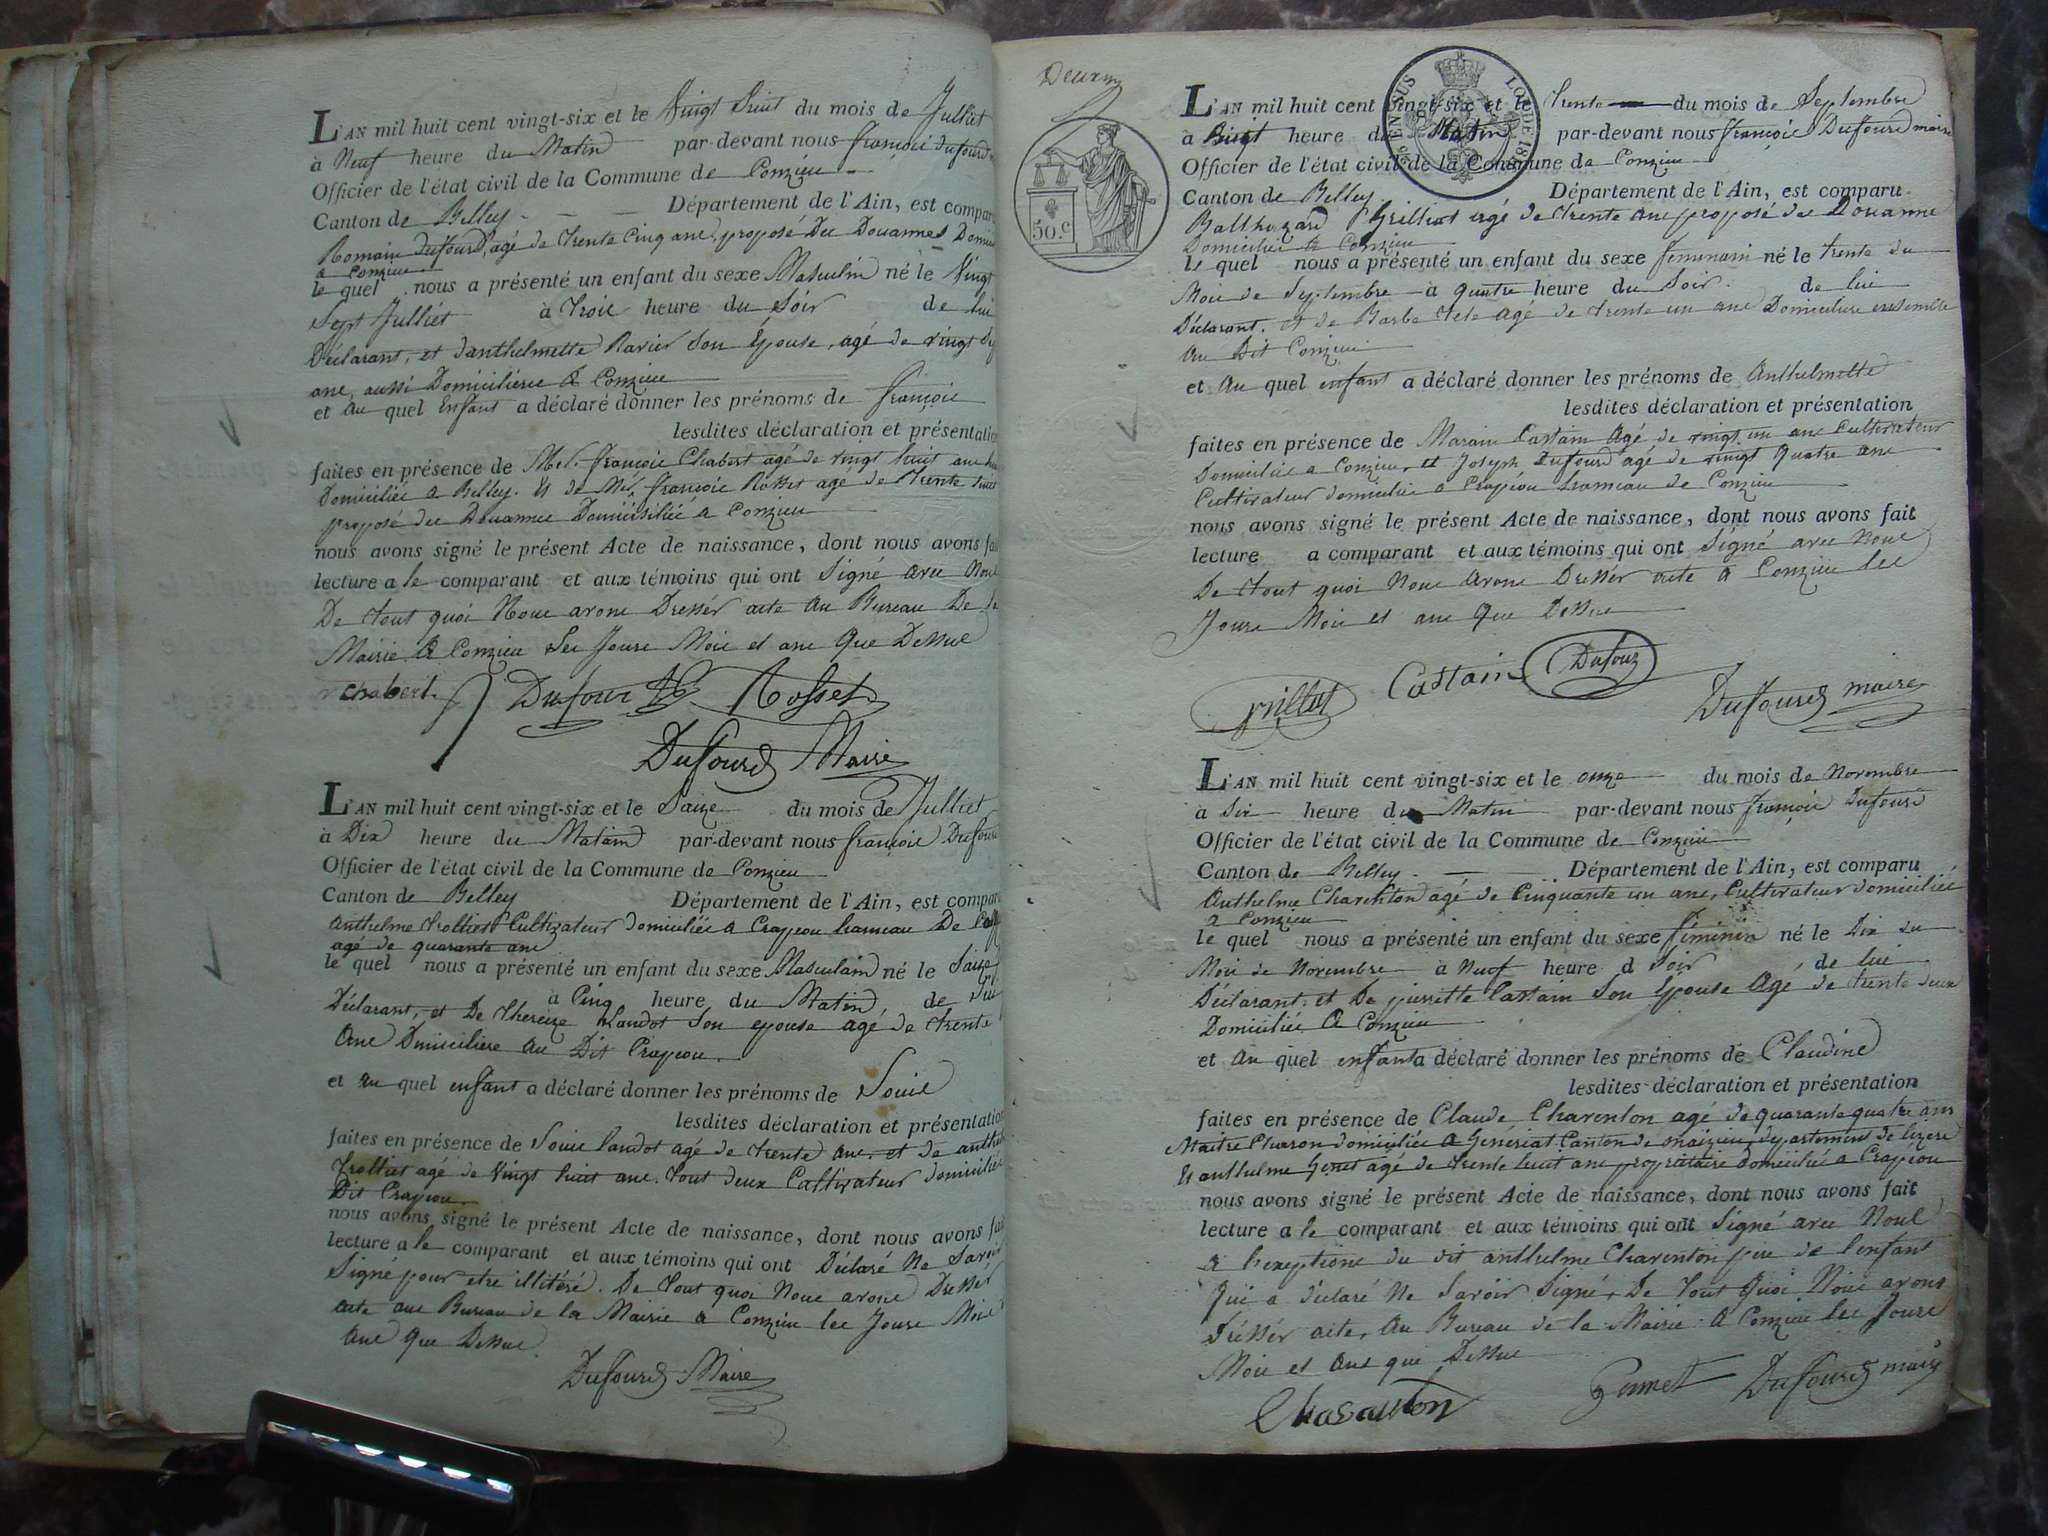 L'AN mil huit cent vingt-six et le Vingt huit du mois de Julliet
à Neuf heure du Matin par-devant nous françois Dufourd
Officier de l'état civil de la Commune de Conzieu
Canton de Belley Département de l'Ain, est comparu
Romain Dufourd, agé de trente Cinq ans, proposé des Douannes
a Conzieu
le quel nous a présenté un enfant du sexe Masculin né le Vingt
Sept Julliet à trois heure du Soir de lui
Déclarant, et d'anthelmette Ravier Son Épouse, agé de vingt
ans, aussi Domiciliere a Conzieu
et au quel Enfant a déclaré donner les prénoms de françois
lesdites déclaration et présentation
faites en présence de françois Chabert agé de vingt huit ans
Domiciliée a Belley. Et de françois Rosset agé de trente
proposé des Douannes Domiciliée a Conzieu
nous avons signé le présent Acte de naissance, dont nous avons fait
lecture a le comparant et aux témoins qui ont Signé avec Nous
De tout quoi Nous avons Dresser acte au Bureau De la
Mairie a Conzieu Les Jours Mois et ans Que Dessus
chabert. Dufour Rosset
Dufourd Maire
L'AN mil huit cent vingt-six et le Saize du mois de Julliet
à Dix heure du Matain par-devant nous françois Dufourd
Officier de l'état civil de la Commune de Conzieu
Canton de Belley Département de l'Ain, est comparu
anthelme trolliet Cultivateur domiciliée a Crapeou hameau De
agé de quarante ans
le quel nous a présenté un enfant du sexe Masculain né le Saize
à Cinq heure du Matin, de lui
Déclarant, et De thereize Landot Son epouse agé de trente
ans Domiciliere au Dit Crapeou.
et au quel enfant a déclaré donner les prénoms de Louis
lesdites déclaration et présentation
faites en présence de Louis Landot agé de trente ans, et de
trolliet agé de Vingt huit ans. tout deux Cultivateur domiciliée
Dit Crapeou.
nous avons signé le présent Acte de naissance, dont nous avons fait
lecture a le comparant et aux témoins qui ont Déclaré Ne Savoir
Signé pour etre illitéré. De tout quoi Nous avons Dresser
acte aux Bureau de la Mairie a Conzieu les Jours Mois
ans Que Dessus.
Dufourd Maire
50.c
L'AN mil huit cent vingt-six et le trente du mois de Septembre
à heure du Matin par-devant nous françois Dufourd maire
Officier de l'état civil de la Commune de Conzieu
Canton de Belley Département de l'Ain, est comparu
Balthazard Grilliat agé de trente ans proposé des Douanne
Domicilié a Conzieu
le quel nous a présenté un enfant du sexe féminain né le trente du
Mois de Septembre à quatre heure du Soir. de lui
Déclarant. et de Barbe agé de trente un ans Domiciliere ensemble
au Dit Conzieu
et au quel enfant a déclaré donner les prénoms de Anthelmette
lesdites déclaration et présentation
faites en présence de Marain Castain agé de vingt un ans Cultivateur
Domicilié a Conzieu, et Joseph Dufourd agé de vingt quatre ans
Cultivateur domicilié a Crapeou hameau de Conzieu
nous avons signé le présent Acte de naissance, dont nous avons fait
lecture a comparant et aux témoins qui ont Signé avec Nous
De tout quoi Nous avons Dresser acte a Conzieu les
Jours Mois et ans Que Dessus
Grillot Castain Dufour
Dufourd maire
L'AN mil huit cent vingt-six et le onze du mois de Novembre
à Dix heure du Matin par-devant nous françois Dufourd
Officier de l'état civil de la Commune de Conzieu
Canton de Belley. Département de l'Ain, est comparu
Anthelme Charenton agé de Cinquante un ans, Cultivateur domiciliée
a Conzieu
le quel nous a présenté un enfant du sexe féminin né le Dix du
Mois de Novembre à Neuf heure d Soir de lui
Déclarant. et De pierrette Castain Son Epouse Agé de trente deux
Domiciliée a Conzieu
et au quel enfant a déclaré donner les prénoms de Claudine
lesdites déclaration et présentation
faites en présence de Claude Charenton agé de quarante quatre ans
Maitre Charon domiciliée a Canton de département de lizere
Et anthelme Genet agé de trente huit ans propriataire domiciliée a Crapeou
nous avons signé le présent Acte de naissance, dont nous avons fait
lecture a le comparant et aux témoins qui ont Signé avec Nous
a lexeptions du dit anthelme Charenton pere de l'enfant
Qui a déclaré Ne Savoir Signé, De tout Quoi Nous avons
Drésser acte, au Bureau de la Mairie a Conzieu les Jours
Mois et ans que Dessus
Charanton Genet Dufourd maire